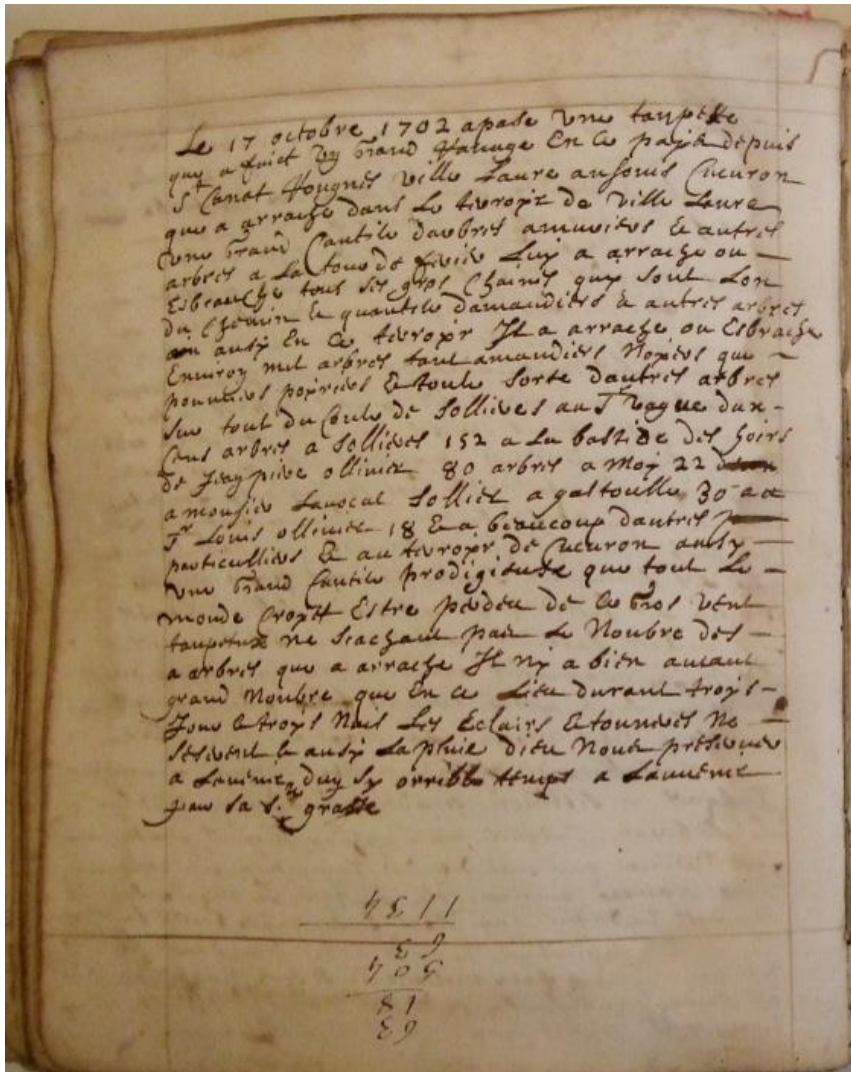 Le 17 octobre 1702 a pasé une tanpeste
que a faict un grand Ravage En ce païs depuis
St Canat Rougnes ville Laure ansouis Cucuron
que a arrache dans Le terroir de ville Laure
une grand Cantite daubres amuriers & autres
arbres a La tour de Luy a arrache ou
Esbranche tout ses gros chaines quy sont Lon
du chemin & quantite damandiers & autres arbres
ausy En ce terroir Il a arrache ou Esbrache
Enviroy mil arbres tant amandiers Noyers que
poumiers poyriers & toute sorte dautres arbres
sur tout du Coute de sollieres au vaque dan
Cens arbres a sollieres 152 a La bastide des hoirs
de Jeanpierre ollivier 80 arbres a Moy 22
a monsier Lavocat solliet a gastoulle 30 a
Sr Louis ollivier 18 & a beaucoup dautres
particulliers & au terroir de Cucuron ausy
une grand Cantite prodigieuse que tout Le
monde Croyet Estre perdeu de ce gros vent
tanpetux ne scachant pas Le Nonbre des
arbres que a arrache Il ny a bien autant
grand Nonbre que En ce Lieu durant troys
Jour & troys Nuis Les Eclairs & tonneres Ne
& ausy La pluie dieu Nous preserve
a Lavenir duy sy orrible temps a Lavenir
par sa Ste grasse
1134
63
504
18
63